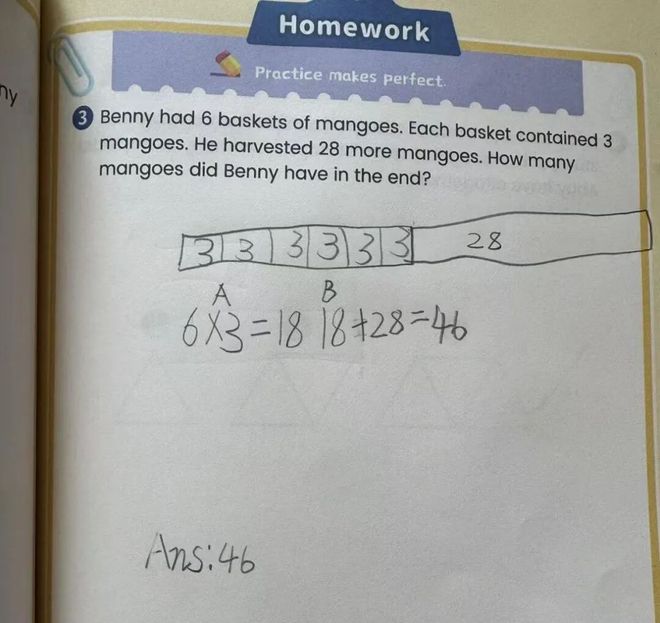 Homework
Practice makes perfect.
ny
3 Benny had 6 baskets of mangoes. Each basket contained 3
mangoes. He harvested 28 more mangoes. How many
mangoes did Benny have in the end?
3 3 3 3 3 3 28
A B
6×3=18 18+28=46
Ans:46